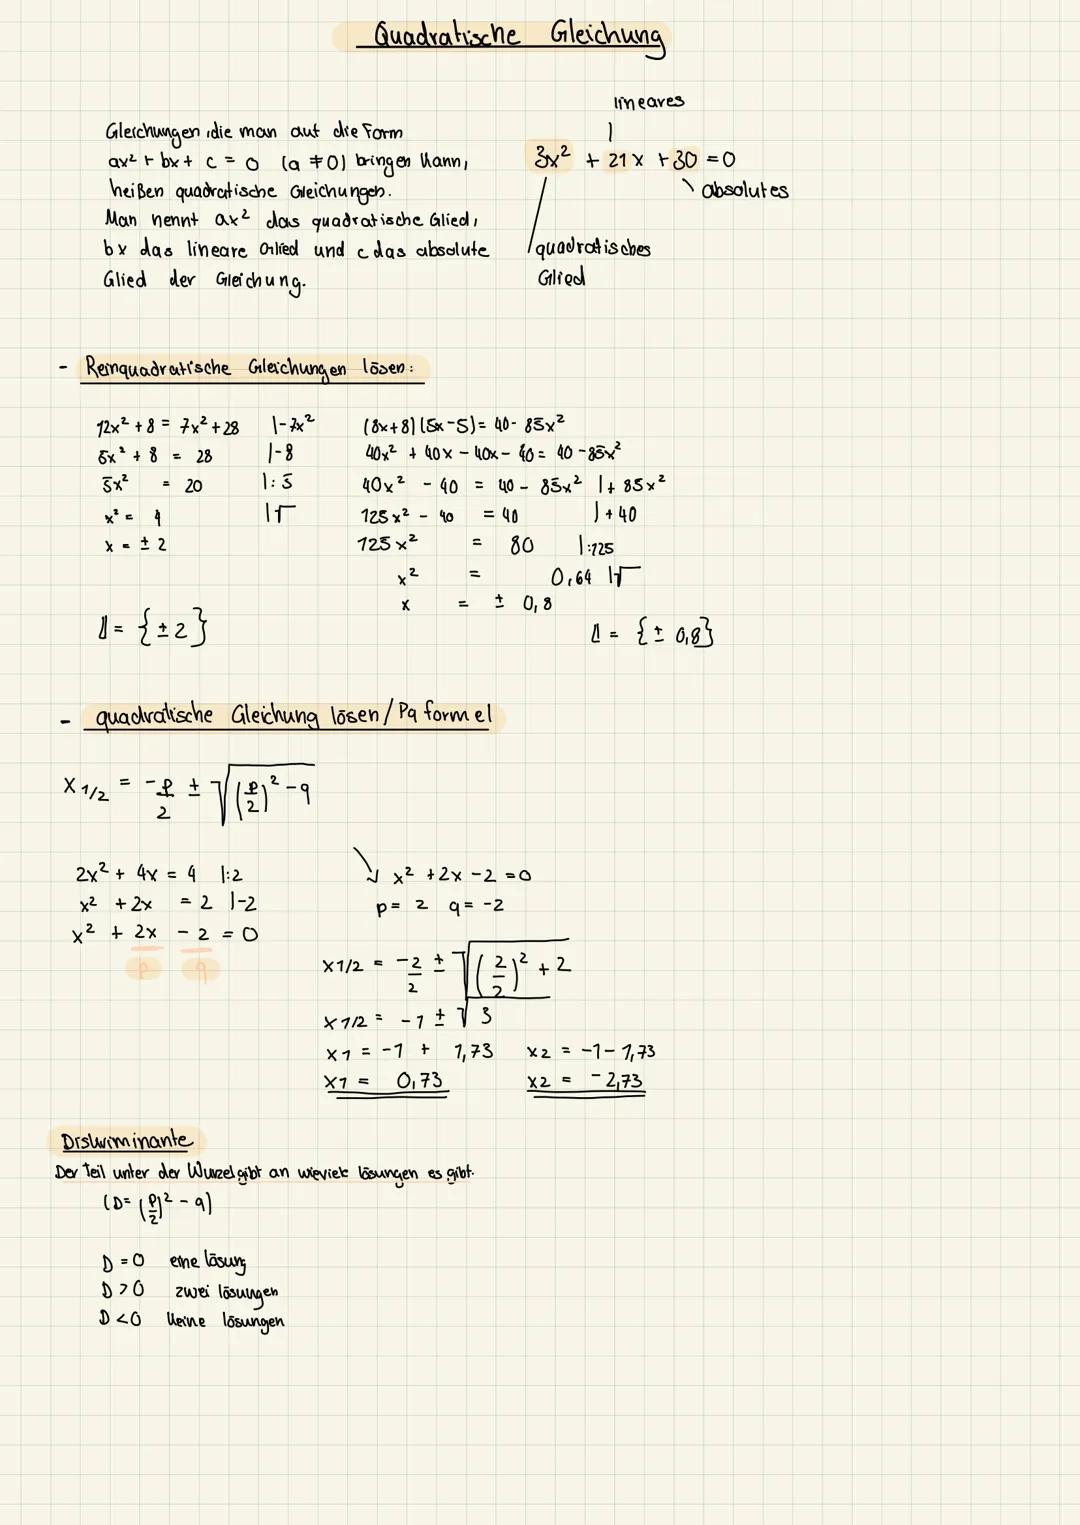 Quadratische Gleichung
Gleichungen, die man auf die Form
ax² + bx + c = 0 (a ≠ 0) bringen kann,
heißen quadratische Gleichungen.
Man nennt ax² das quadratische Glied,
bx das lineare Glied und c das absolute
Glied der Gleichung.
lineares
3x² + 21x + 30 = 0
absolutes
quadratisches
Glied
- Reinquadratische Gleichungen lösen:
12x² + 8 = 7x² + 28 |-7x²
5x² + 8 = 28 |-8
5x² = 20 |:5
x² = 4 |√
x = ± 2
𝕃 = {± 2}
(8x+8)(5x-5) = 40 - 85x²
40x² + 40x - 40x - 40 = 40 - 85x²
40x² - 40 = 40 - 85x² |+ 85x²
125x² - 40 = 40 |+ 40
125x² = 80 |:125
x² = 0,64 |√
x = ± 0,8
𝕃 = {± 0,8}
- quadratische Gleichung lösen / Pq formel
x1/2 = -p/2 ± √((p/2)² - q)
2x² + 4x = 4 |:2
x² + 2x = 2 |-2
x² + 2x - 2 = 0
p q
x² + 2x - 2 = 0
p = 2 q = -2
x1/2 = -2/2 ± √((2/2)² + 2)
x1/2 = -1 ± √3
x1 = -1 + 1,73 x2 = -1 - 1,73
x1 = 0,73 x2 = -2,73
Diskriminante
Der Teil unter der Wurzel gibt an wieviele lösungen es gibt.
(D = (p/2)² - q)
D = 0 eine lösung
D > 0 zwei lösungen
D < 0 keine lösungen